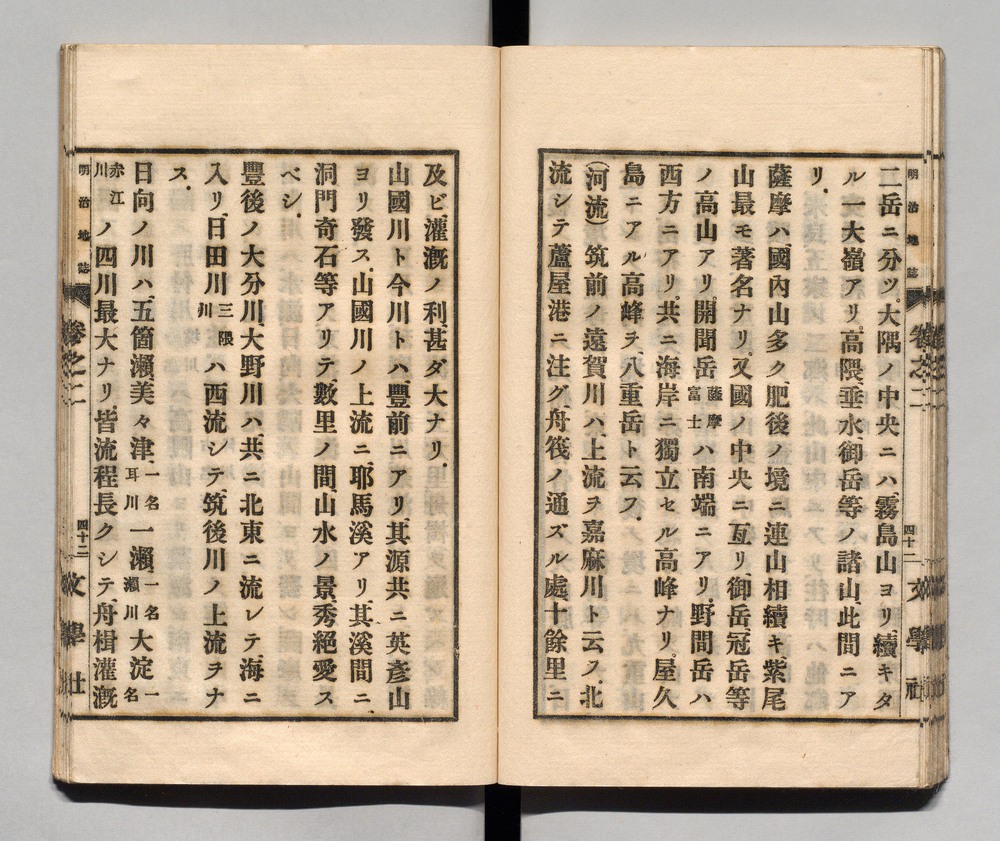 二岳ニ分ツ。大隅ノ中央ニハ、霧島山ヨリ、續キタ
ル一大嶺アリ。高隈、垂水、御岳等ノ諸山、此間ニア
リ。
薩摩ハ、國內山多ク、肥後ノ境ニ連山相續キ、紫尾
山最モ著名ナリ。又國ノ中央ニ亙リ、御岳、冠岳等
ノ高山アリ。開聞岳薩摩富士ハ南端ニアリ、野間岳ハ
西方ニアリ。共ニ海岸ニ獨立セル高峰ナリ。屋久
島ニアル高峰ヲ、八重岳ト云フ。
(河流)筑前ノ遠賀川ハ、上流ヲ嘉麻川ト云フ、北
流シテ蘆屋港ニ注グ、舟筏ノ通ズル處十餘里ニ
明治地誌
卷之二
四十二
文學社
及ビ、灌漑ノ利、甚ダ大ナリ。
山國川ト今川トハ、豐前ニアリ、其源共ニ英彥山
ヨリ發ス。山國川ノ上流ニ、耶馬溪アリ、其溪間ニ、
洞門奇石等アリテ、數里ノ間、山水ノ景秀絕愛ス
ベシ。
豐後ノ大分川、大野川ハ、共ニ北東ニ流レテ、海ニ
入リ、日田川三隈川ハ西流シテ、筑後川ノ上流ヲナ
ス。
日向ノ川ハ、五箇瀨、美々津一名耳川一瀨一名瀨川大淀一名
赤江川ノ四川最大ナリ、皆流程長クシテ、舟楫灌漑
明治地誌
卷之二
四十二
文學社